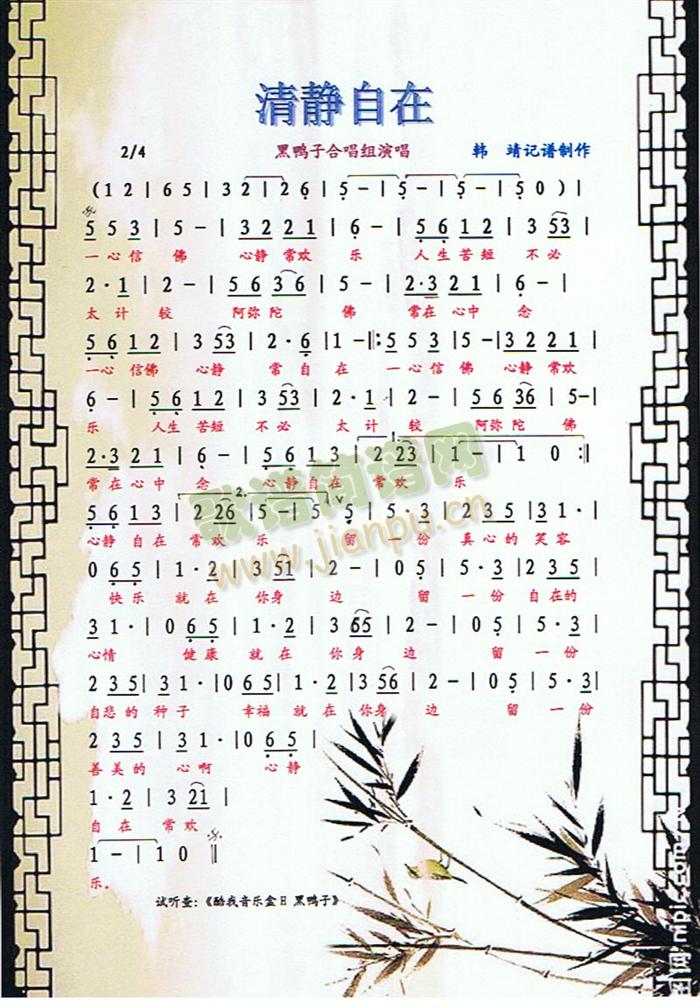 清静自在
2/4 黑鸭子合唱组演唱 韩 靖记谱制作
( 1 2 | 6 5 | 3 2 | 2 6 | 5 - | 5 - | 5 - | 5 0 ) |
5 5 3 | 5 - | 3 2 2 1 | 6 - | 5 6 1 2 | 3 53 |
一心信 佛 心静 常欢 乐 人生 苦短 不必
2 · 1 | 2 - | 5 6 3 6 | 5 - | 2·3 2 1 | 6 - |
太 计 较 阿弥 陀 佛 常在 心中 念
5 6 1 2 | 3 53 | 2 · 6 | 1 - :‖: 5 5 3 | 5 - | 3 2 2 1 |
一心 信佛 心静 常 自 在 一心信 佛 心静 常欢
6 - | 5 6 1 2 | 3 53 | 2 · 1 | 2 - | 5 6 36 | 5 - |
乐 人生 苦短 不必 太 计 较 阿弥 陀 佛
2·3 2 1 | 6 - | 5 6 1 3 | 2 23 | 1 - | 1 0 :‖
常在 心中 念 心静 自在 常欢 乐
5 6 1 3 | 2 26 | 5 - | 5 5 | 5 · 3 | 2 3 5 | 3 1 · |
心静 自在 常欢 乐 留 一 份 真心的 笑容
0 6 5 | 1 · 2 | 3 51 | 2 - | 0 5 | 5 · 3 | 2 3 5 |
快乐 就 在 你身 边 留 一 份 自在的
3 1 · | 0 6 5 | 1 · 2 | 3 65 | 2 - | 0 5 | 5 · 3 |
心情 健康 就 在 你身 边 留 一 份
2 3 5 | 3 1 · | 0 6 5 | 1 · 2 | 3 56 | 2 - | 0 5 | 5 · 3 |
自悲的 种子 幸福 就 在 你身 边 留 一 份
2 3 5 | 3 1 · | 0 6 5 |
善美的 心啊 心静
1 · 2 | 3 21 |
自 在 常欢
1 - | 1 0 ‖
乐.
试听查:《酷我音乐盒H 黑鸭子》
歌谱简谱网
www.jianpu.cn